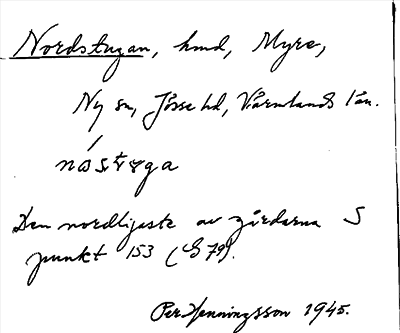 Nordstugan, hmd, Myre,
Ny sn, Jösse hd, Värmlands län.
Den nordligaste av gårdarna S
punkt 153 ( 79).
Per Henningsson 1945.